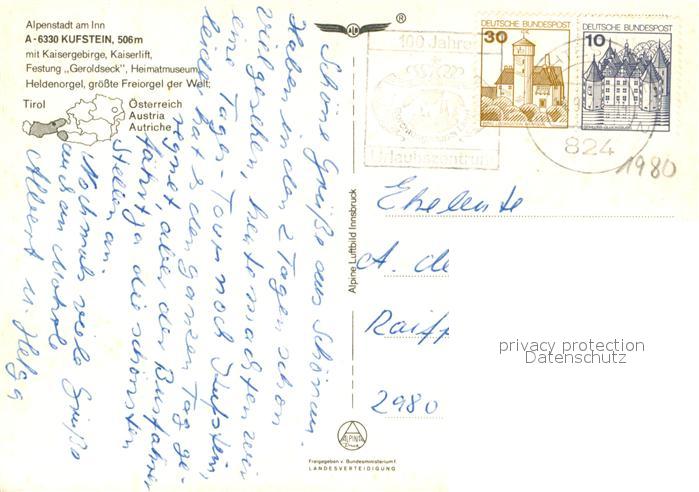 Alpenstadt am Inn
A-6330 KUFSTEIN, 506m
mit Kaisergebirge, Kaiserlift,
Festung „Geroldseck”, Heimatmuseum,
Heldenorgel, größte Freiorgel der Welt.
Tirol
Österreich
Austria
Autriche
®
Schöne Grüße aus Schönau.
Haben in den 2 Tagen schon
viel gesehen, heute machten wir
eine Tages-Tour nach Kufstein,
leider hat es den ganzen Tag ge-
regnet, aber der Busfahrer
fährt ja die schönsten
Stellen an.
Nochmals viele Grüße
auch an
Albert u. Helga
Alpine Luftbild Innsbruck
ALPINE
Freigegeben v. Bundesministerium f.
LANDESVERTEIDIGUNG
100 Jahre
Urlaubszentrum
DEUTSCHE BUNDESPOST
30
DEUTSCHE BUNDESPOST
10
824
1980
Eheleute
A. de
Raiff
2980
privacy protection
Datenschutz